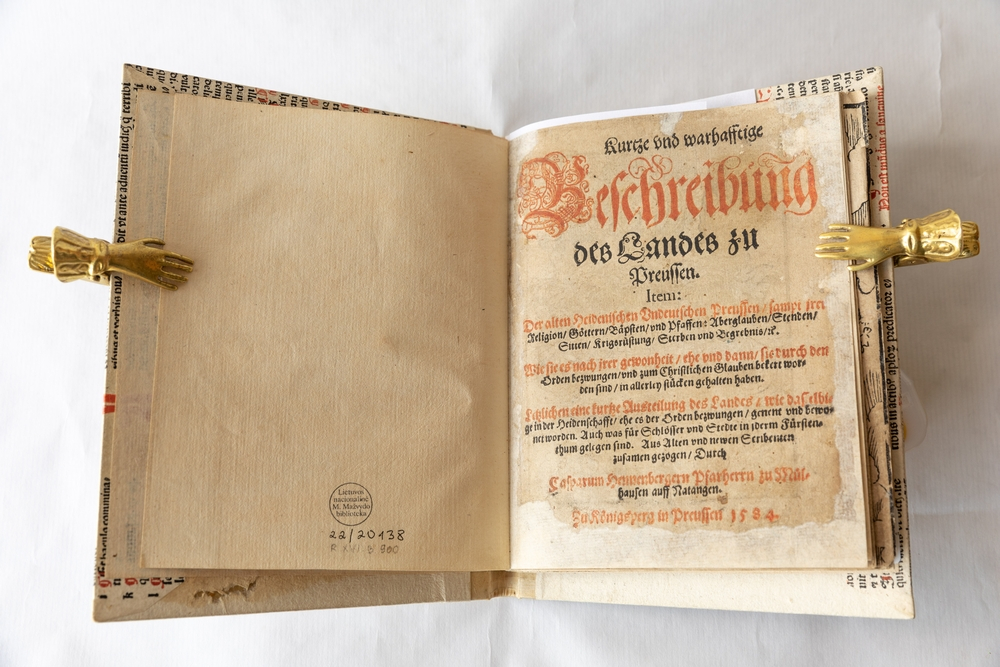 Lietuvos
nacionalinė
M. Mažvydo
biblioteka
22/20138
R XVI B 900
Kurtze vnd warhafftige
Beschreibung
des Landes zu
Preussen.
Item:
Der alten Heidenischen Vndeutschen Preussen / sampt irer
Religion / Göttern / Bäpsten / vnd Pfaffen: Aberglauben / Stenden /
Sitten / Krigsrüstung / Sterben vnd Begrebnis / ꝛc.
Wie sie es nach jrer gewonheit / ehe vnd dann / sie durch den
Orden bezwungen / vnd zum Christlichen Glauben bekert wor-
den sind / in allerley stücken gehalten haben.
Letzlichen eine kurtze Austeilung des Landes / wie dasselbi-
ge in der Heidenschafft / ehe es der Orden bezwungen / genent vnd bewo-
net worden. Auch was für Schlösser vnd Stedte in jderm Fürsten-
thum gelegen sind. Aus Alten vnd newen Scribenten
zusamen gezogen / Durch
Casparum Hennenbergern Pfarherrn zu Mül-
hausen auff Natangen.
Zu Königsperg in Preussen 1584.